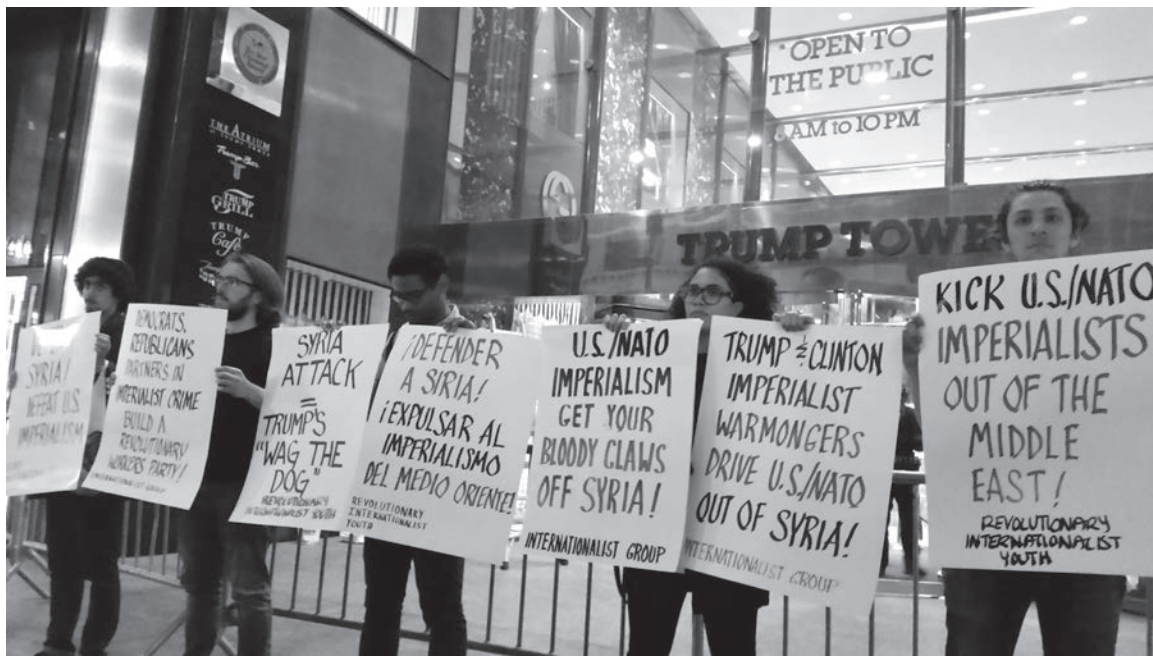 "OPEN TO
THE PUBLIC
8AM to 10PM
THE ATRIUM
Trump Bar
TRUMP
GRILL
TRUMP
Café
TRUMP TOWE
SYRIA!
DEFEAT U.S.
IMPERIALISM
DEMOCRATS,
REPUBLICANS
PARTNERS IN
IMPERIALIST CRIME
BUILD A
REVOLUTIONARY
WORKERS PARTY!
INTERNATIONALIST GROUP
SYRIA
ATTACK
=
TRUMP'S
"WAG THE
DOG"
REVOLUTIONARY
INTERNATIONALIST YOUTH
¡DEFENDER
A SIRIA!
¡EXPULSAR AL
IMPERIALISMO
DEL MEDIO ORIENTE!
REVOLUTIONARY
INTERNATIONALIST
YOUTH
U.S./NATO
IMPERIALISM
GET YOUR
BLOODY CLAWS
OFF SYRIA!
INTERNATIONALIST GROUP
TRUMP & CLINTON
IMPERIALIST
WARMONGERS
DRIVE U.S./NATO
OUT OF SYRIA!
INTERNATIONALIST GROUP
KICK U.S./NATO
IMPERIALISTS
OUT OF THE
MIDDLE
EAST!
REVOLUTIONARY
INTERNATIONALIST
YOUTH